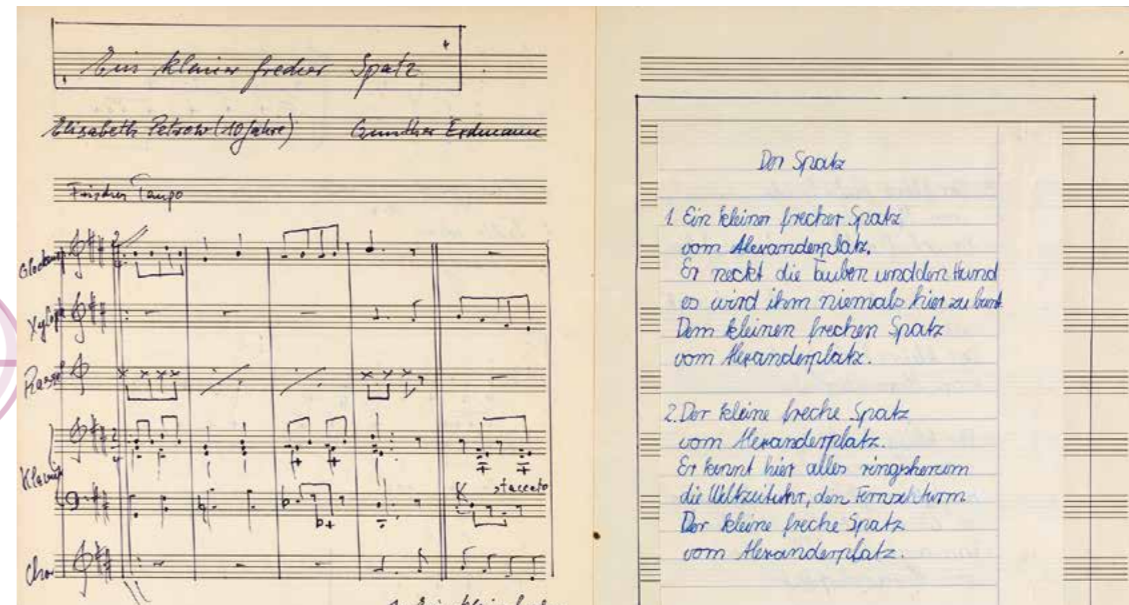 Ein kleiner frecher Spatz
Elisabeth Petrow (10 Jahre) Gunther Erdmann
Frisches Tempo
Xyloph
Rassel
Klavier
staccato
Chor
1. Ein kleiner
Der Spatz
1. Ein kleiner frecher Spatz
vom Alexanderplatz.
Er neckt die Tauben und den Hund
es wird ihm niemals hier zu bunt
Dem kleinen frechen Spatz
vom Alexanderplatz.
2. Der kleine freche Spatz
vom Alexanderplatz.
Er kennt hier alles ringsherum
die Weltzeituhr, den Fernsehturm
Der kleine freche Spatz
vom Alexanderplatz.